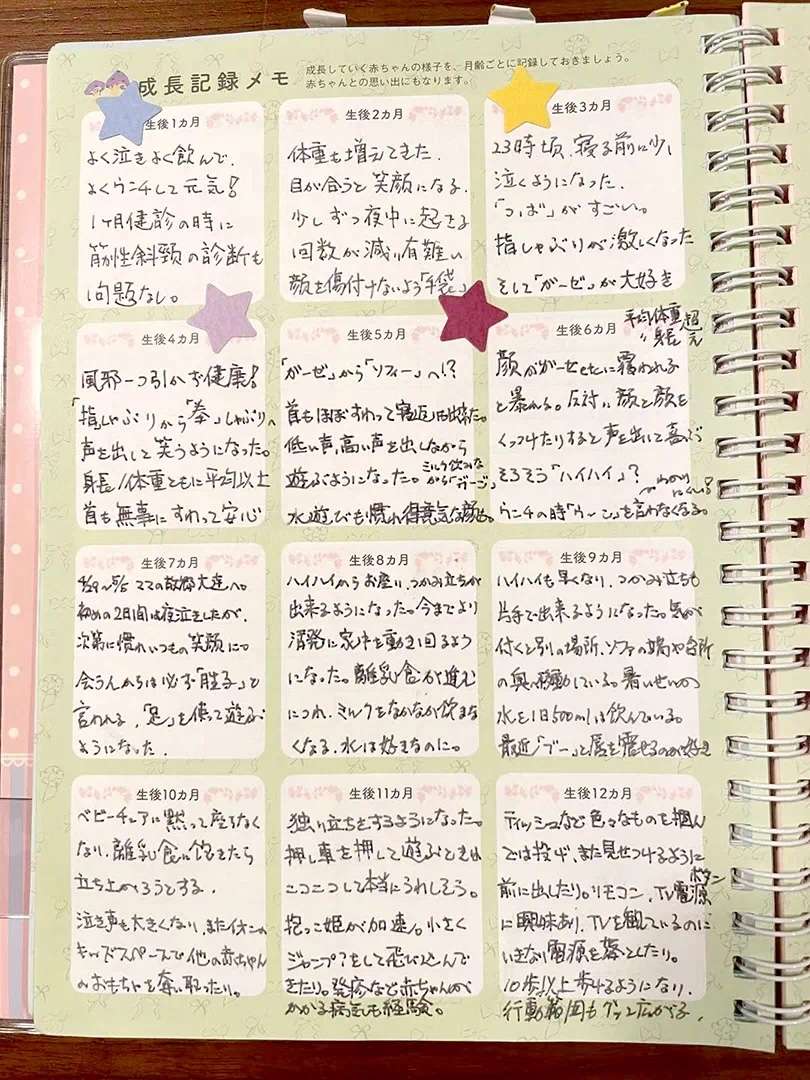 成長記録メモ
成長していく赤ちゃんの様子を、月齢ごとに記録しておきましょう。
赤ちゃんとの思い出にもなります。
生後1カ月
よく泣きよく飲んで、
よくウンチして元気!
1ヶ月健診の時に
筋性斜頸の診断も
問題なし。
生後2カ月
体重も増えてきた。
目が合うと笑顔になる。
少しずつ夜中に起きる
回数が減り有難い
顔を傷付けないよう「手袋」
生後3カ月
23時頃、寝る前に少し
泣くようになった。
「つば」がすごい。
指しゃぶりが激しくなった
そして「ガーゼ」が大好き
生後4カ月
風邪一つ引かず健康!
「指しゃぶりから「拳」しゃぶりへ
声を出して笑うようになった。
身長/体重ともに平均以上
首も無事にすわって安心
生後5カ月
「ガーゼ」から「ソフィー」へ!?
首もほぼすわって寝返りも出来た。
低い声、高い声を出しながら
遊ぶようになった。ミルク飲みな
がら「ゴーゴ」
水遊びも慣れ得意気な顔も。
生後6カ月
平均体重超
〃身長元
顔がガーゼetcに覆われる
と暴れる。反対に顔と顔を
くっつけたりすると声を出して喜ぶ
そろそろ「ハイハイ」?
わかり
にくい!
ウンチの時「ウーン」を言わなくなる。
生後7カ月
4/29~5/5 ママの故郷大連へ。
初めの2日間は夜泣をしたが、
次第に慣れいつもの笑顔に。
会う人からは必ず「胖子」と
言われる。「足」を使って遊ぶ
ようになった。
生後8カ月
ハイハイからお座り、つかみ立ちが
出来るようになった。今までより
活発に家中を動き回るよう
になった。離乳食が進む
につれ、ミルクをなかなか飲まな
くなる。水は好きなのに。
生後9カ月
ハイハイも早くなり、つかみ立ちも
片手で出来るようになった。気が
付くと別の場所、ソファの端や台所
の奥へ移動している。暑いせいか
水を1日500mlは飲んでいる。
最近「ブー」と唇を震せるのが好き
生後10カ月
ベビーチェアに黙って座らなく
なり、離乳食に飽きたら
立ち上がろうとする。
泣き声も大きくなり、またイオンの
キッズスペースで他の赤ちゃん
のおもちゃを奪い取ったり。
生後11カ月
独り立ちをするようになった。
押し車を押して遊ぶときは
ニコニコして本当にうれしそう。
抱っこ姫が加速。小さく
ジャンプ?をして飛び込んで
きたり。発疹など赤ちゃんが
かかる病気も経験。
生後12カ月
ティッシュなど色々なものを掴ん
では投げ、また見せつけるように
前に出したり。リモコン、TV電源
ボタン
に興味あり、TVを観ているのに
いきなり電源を落としたり。
10歩以上歩けるようになり、
行動範囲もグッと広がる。